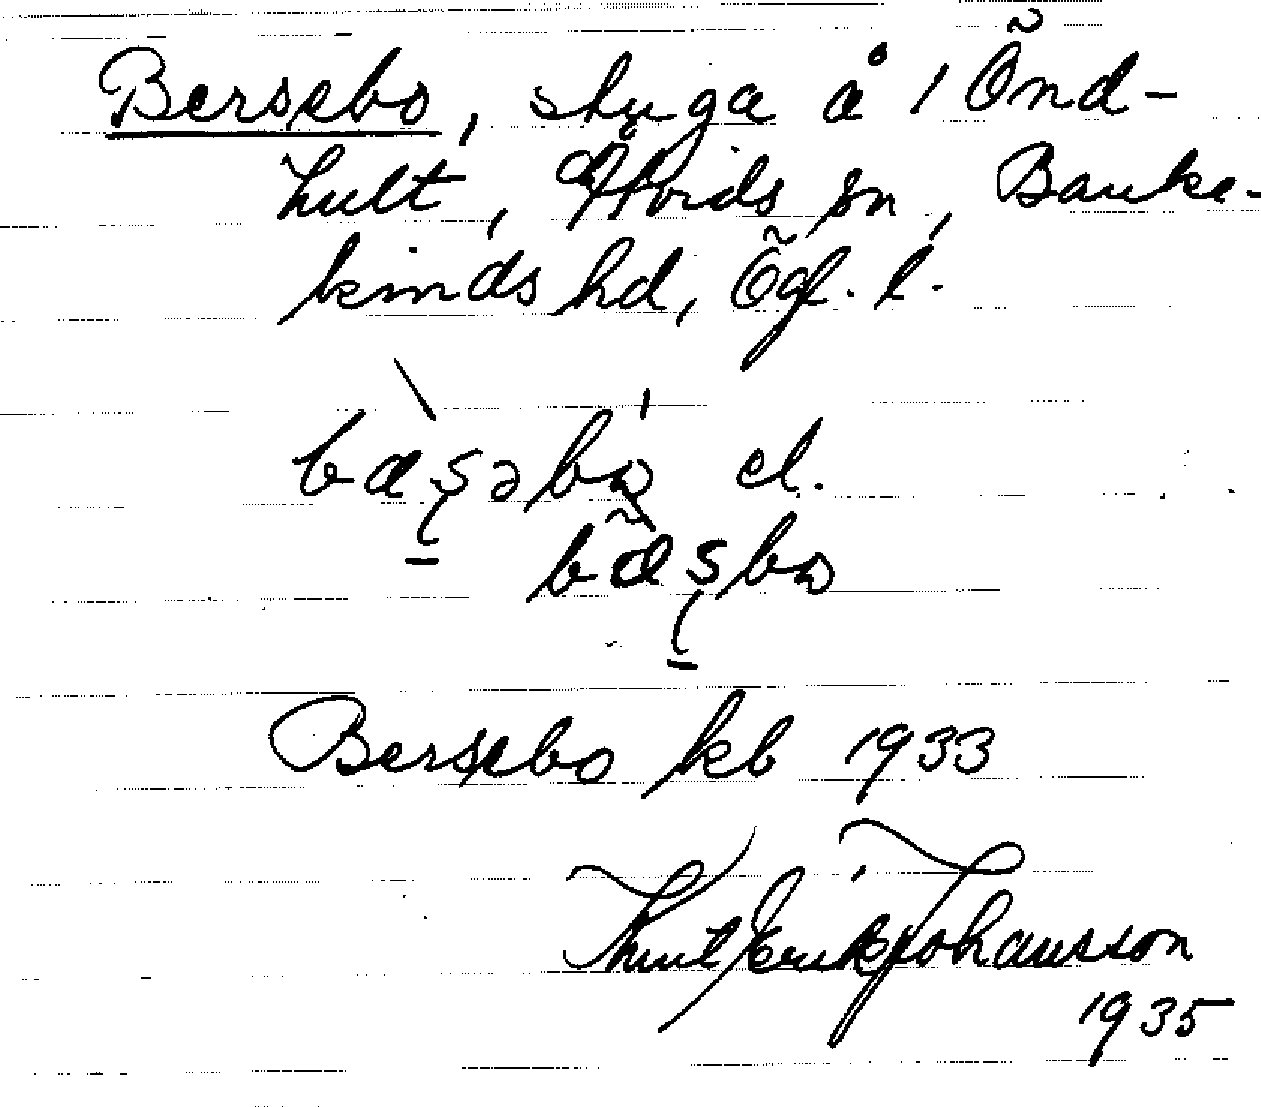 Bersebo, stuga å 1 Önd-
hult, Åtvids sn, Banke-
kinds hd, Ögl. l.
bæʂəbω el.
bæʂbω
Bersebo kb 1933
Knut Erik Johansson
1935